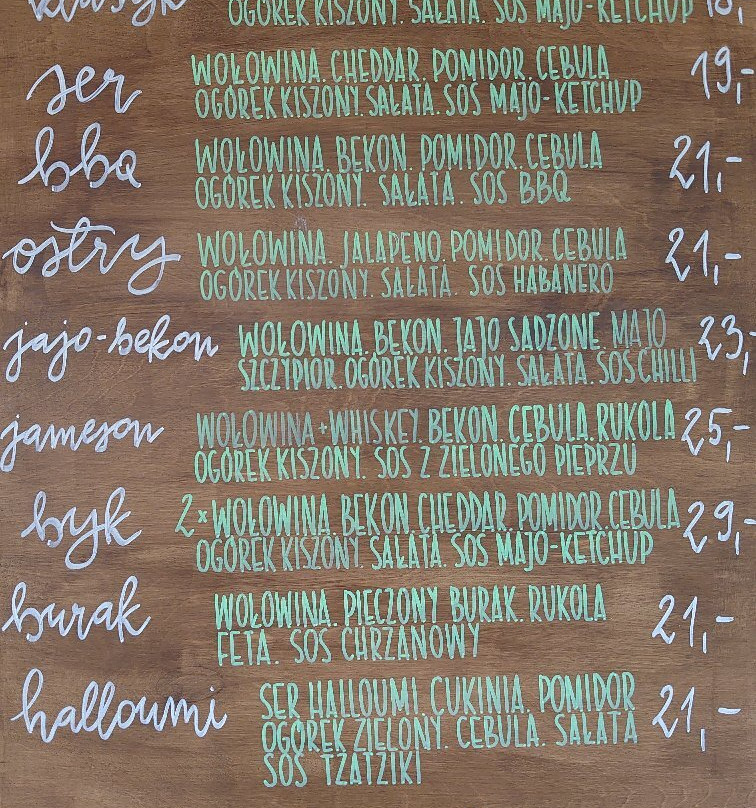 klasyk OGÓREK KISZONY. SAŁATA. SOS MAJO-KETCHUP 18,-
ser WOŁOWINA. CHEDDAR. POMIDOR. CEBULA 19,-
OGÓREK KISZONY. SAŁATA. SOS MAJO-KETCHUP
bbq WOŁOWINA. BEKON. POMIDOR. CEBULA 21,-
OGÓREK KISZONY. SAŁATA. SOS BBQ
ostry WOŁOWINA. JALAPENO. POMIDOR. CEBULA 21,-
OGÓREK KISZONY. SAŁATA. SOS HABANERO
jajo-bekon WOŁOWINA. BEKON. JAJO SADZONE. MAJO 23,-
SZCZYPIOR. OGÓREK KISZONY. SAŁATA. SOS CHILLI
jameson WOŁOWINA+WHISKEY. BEKON. CEBULA. RUKOLA 25,-
OGÓREK KISZONY. SOS Z ZIELONEGO PIEPRZU
byk 2×WOŁOWINA. BEKON. CHEDDAR. POMIDOR. CEBULA 29,-
OGÓREK KISZONY. SAŁATA. SOS MAJO-KETCHUP
burak WOŁOWINA. PIECZONY BURAK. RUKOLA 21,-
FETA. SOS CHRZANOWY
halloumi SER HALLOUMI. CUKINIA. POMIDOR 21,-
OGÓREK ZIELONY. CEBULA. SAŁATA
SOS TZATZIKI